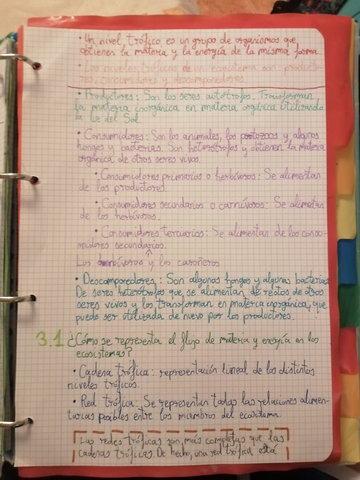 • Un nivel trófico es un grupo de organismos que
obtienen la materia y la energía de la misma forma.
• Los niveles tróficos de un ecosistema son: productores,
consumidores y descomponedores.
• Productores: Son los seres autótrofos. Transforman
la materia inorgánica en materia orgánica utilizando
la luz del Sol.
• Consumidores: Son los animales, los protozoos y algunos
hongos y bacterias. Son heterótrofos y obtienen la materia
orgánica de otros seres vivos.
• Consumidores primarios o herbívoros: Se alimentan
de los productores.
• Consumidores secundarios o carnívoros: Se alimentan
de los herbívoros.
• Consumidores terciarios: Se alimentan de los consu-
midores secundarios.
Los omnívoros y los carroñeros
• Descomponedores: Son algunos hongos y algunas bacterias.
De seres heterótrofos que se alimentan de restos de otros
seres vivos y los transforman en materia inorgánica, que
puede ser utilizada de nuevo por los productores.
3.1 ¿Cómo se representa el flujo de materia y energía en los
ecosistemas?
• Cadena trófica: representación lineal de los distintos
niveles tróficos
• Red trófica: Se representan todas las relaciones alimen-
tarias posibles entre los miembros del ecosistema
Las redes tróficas son más complejas que las
cadenas tróficas. De hecho, una red trófica está